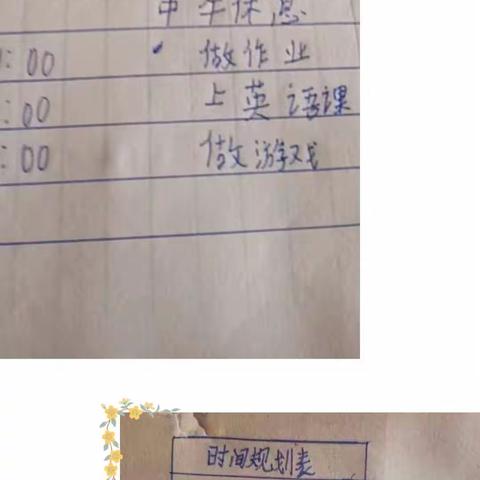 中午休息
:00 做作业
:00 上英语课
:00 做游戏
时间规划表